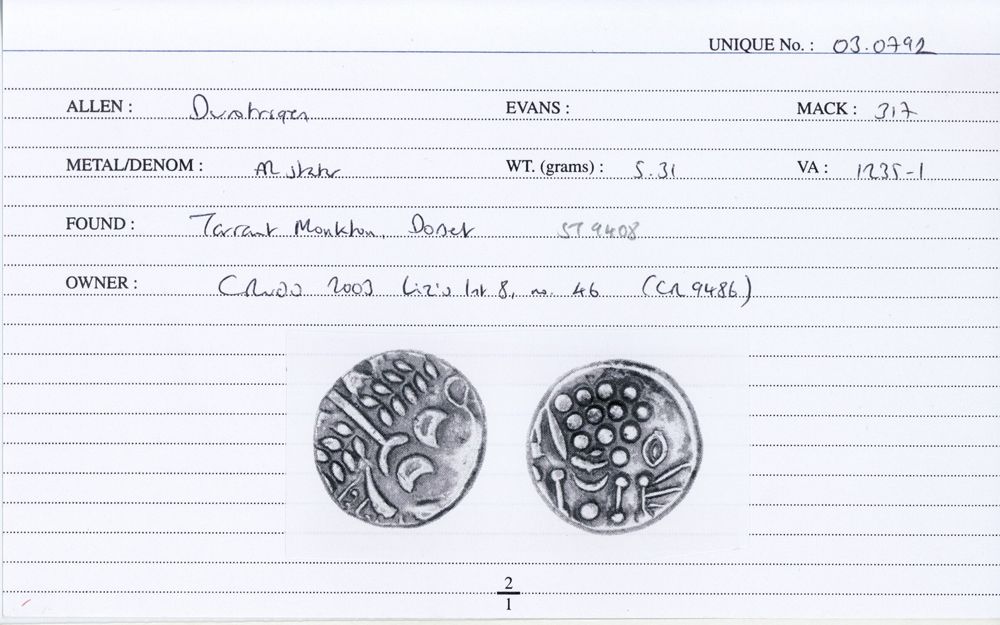 UNIQUE No. : 03.0792
ALLEN : Durotriges EVANS : MACK : 317
METAL/DENOM : AR stater WT. (grams) : 5.31 VA : 1235-1
FOUND : Tarrant Monkton, Dorset ST 9408
OWNER : 2003 list 8, no. 46 (CR 9486)
2
1